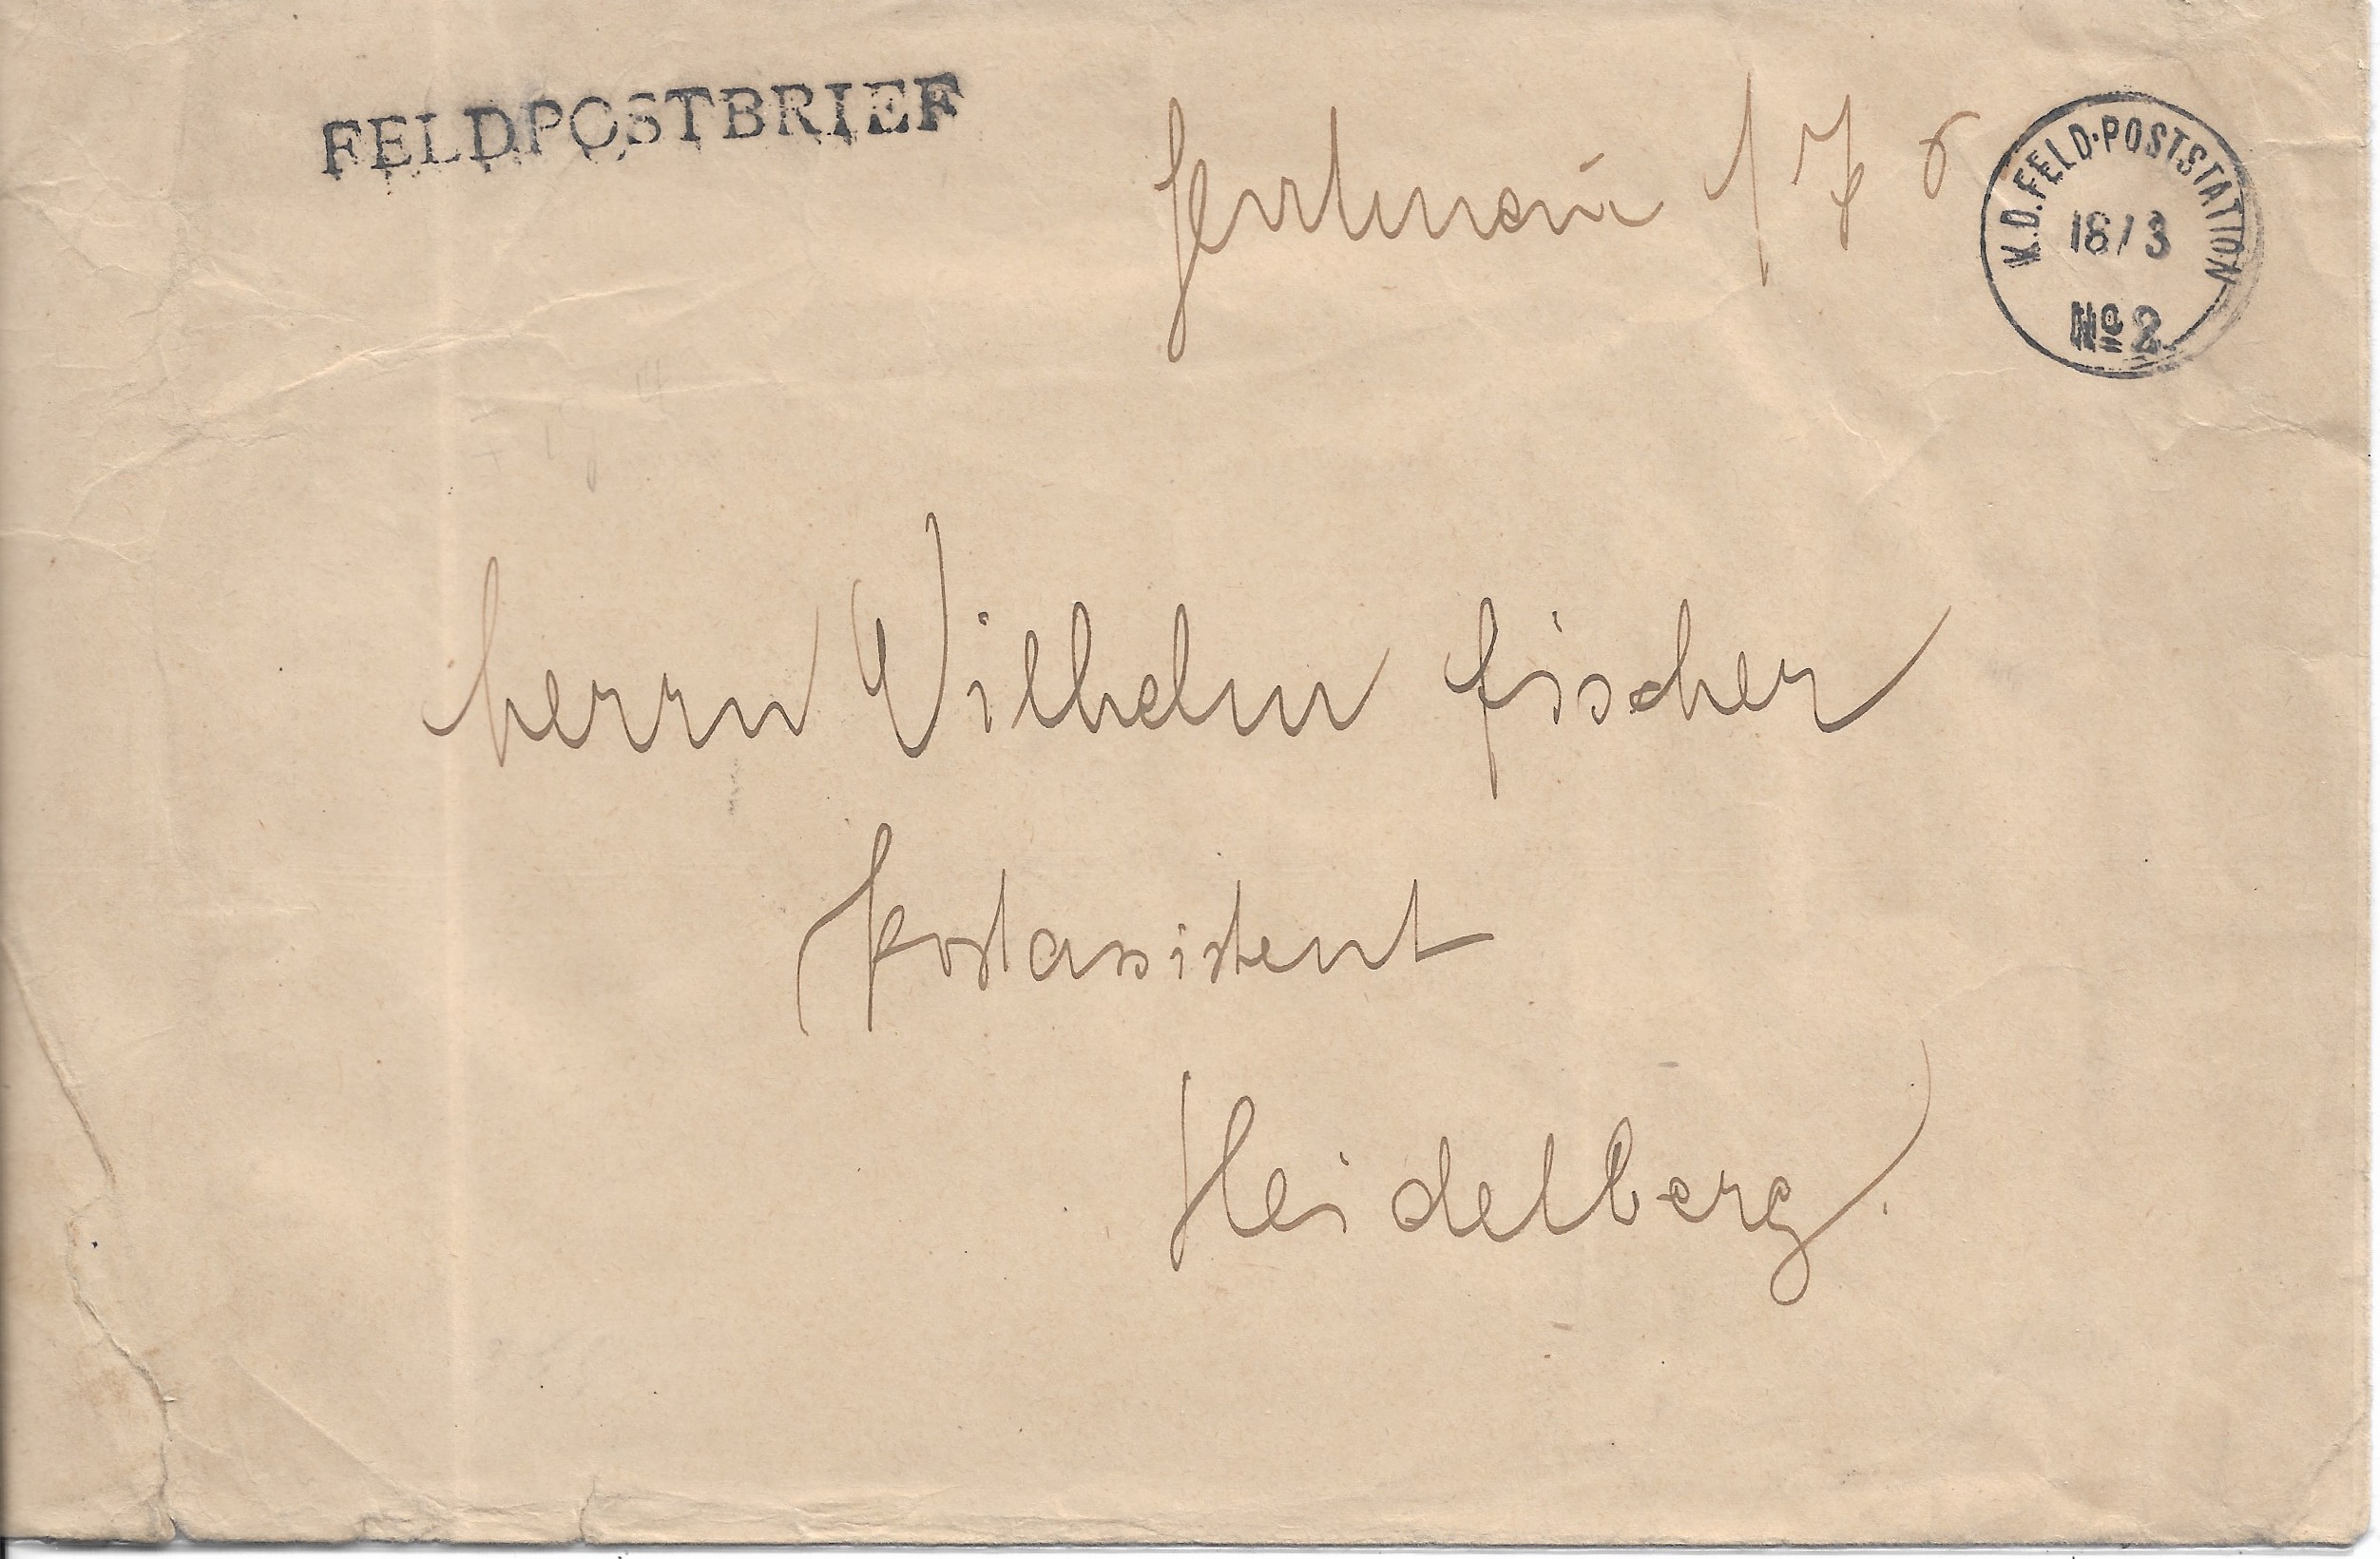 FELDPOSTBRIEF
K.D. FELD-POSTSTATION
18/3
No 2
Herrn Wilhelm Fischer
Postassistent
Heidelberg.